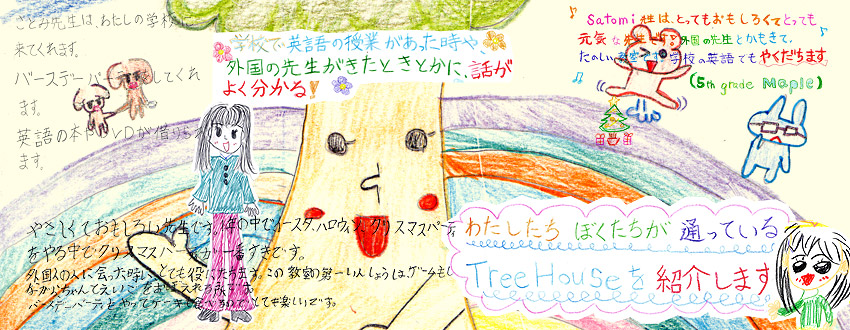 さとみ先生は、わたしの学校に
来てくれます。
バースデーパーティをしてくれ
ます。
英語の本やDVDが借りられ
ます。
学校で英語の授業があった時や、
外国の先生がきたときとかに、話が
よく分かる!
Satomi 先生は、とってもおもしろくてとっても
元気な先生です。外国の先生とかもきて、
たのしい教室です。学校の英語でもやくだちます。
(5th grade Maple)
やさしくておもしろい先生です。1年の中でイースター、ハロウィン、クリスマスパーティ
をやる中でクリスマスパーティが一番すきです。
外国の人に会った時に、とても役にたちます。この教室の第一いんしょうは、ゲームをし
バースデーパーティとやってケーキも とても楽しいです。
わたしたち ぼくたちが 通っている
Tree Houseを 紹介します